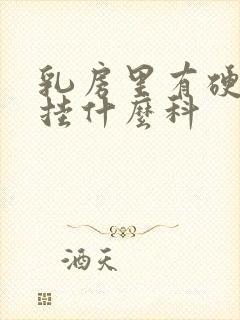 乳房里有硬
挂什麼科
酒天